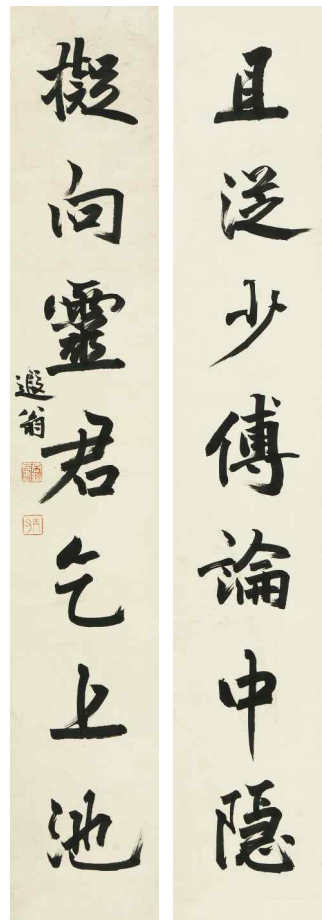 且從少傅論中隱
擬向靈君乞上池
遐翁